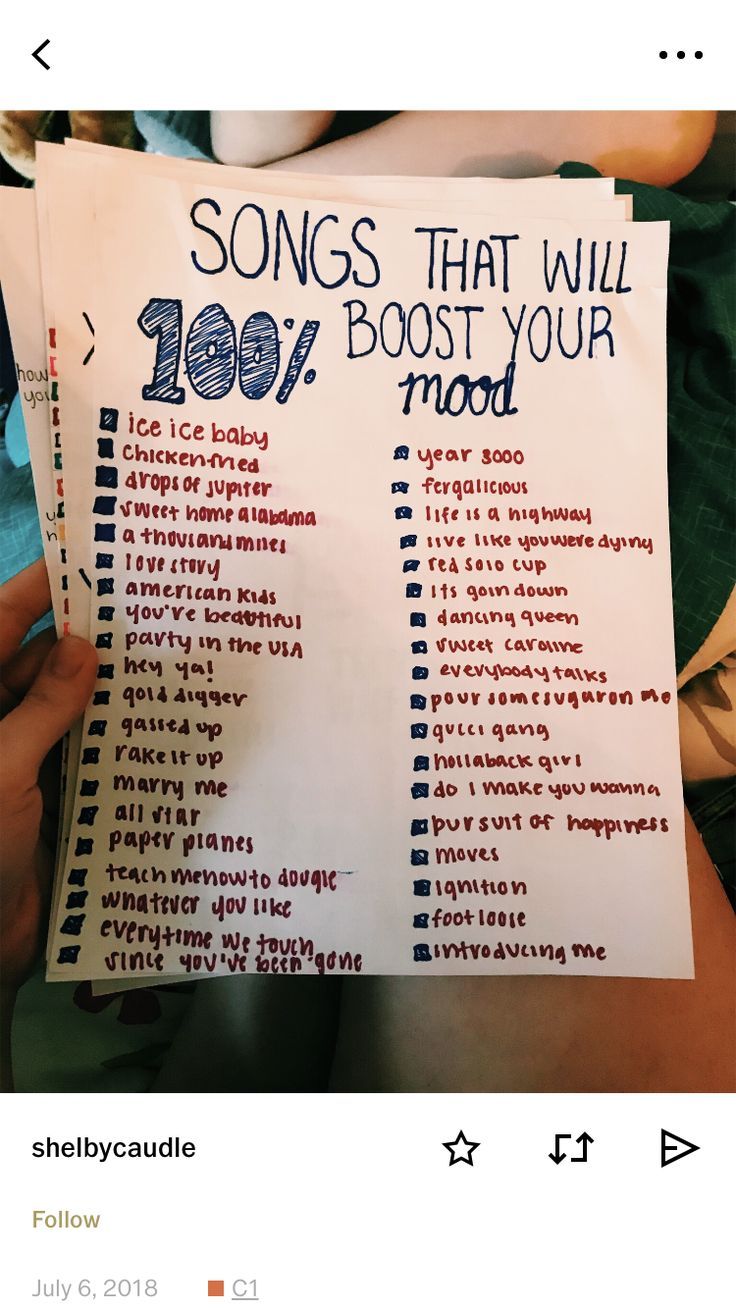 SONGS THAT WILL
100% BOOST YOUR
mood
how
you
ice ice baby
chicken fried
drops of jupiter
sweet home alabama
a thousand miles
love story
american kids
you're beautiful
party in the USA
hey ya!
gold digger
gassed up
rake it up
marry me
all star
paper planes
teach me how to dougie
whatever you like
everytime we touch
since you've been gone
year 3000
fergalicious
life is a highway
live like you were dying
red solo cup
its goin down
dancing queen
sweet caroline
everybody talks
pour some sugar on me
gucci gang
hollaback girl
do I make you wanna
pursuit of happiness
moves
ignition
footloose
introducing me
shelbycaudle
Follow
July 6, 2018 C1